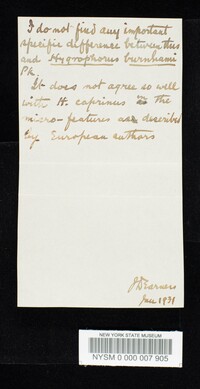 I do not find any important
specific difference between this
and Hygrophorus burnhami
Pk.
It does not agree so well
with H. caprinus in the
micro-features as described
by European authors
Jan 1931
NEW YORK STATE MUSEUM
NYSM 0 000 007 905